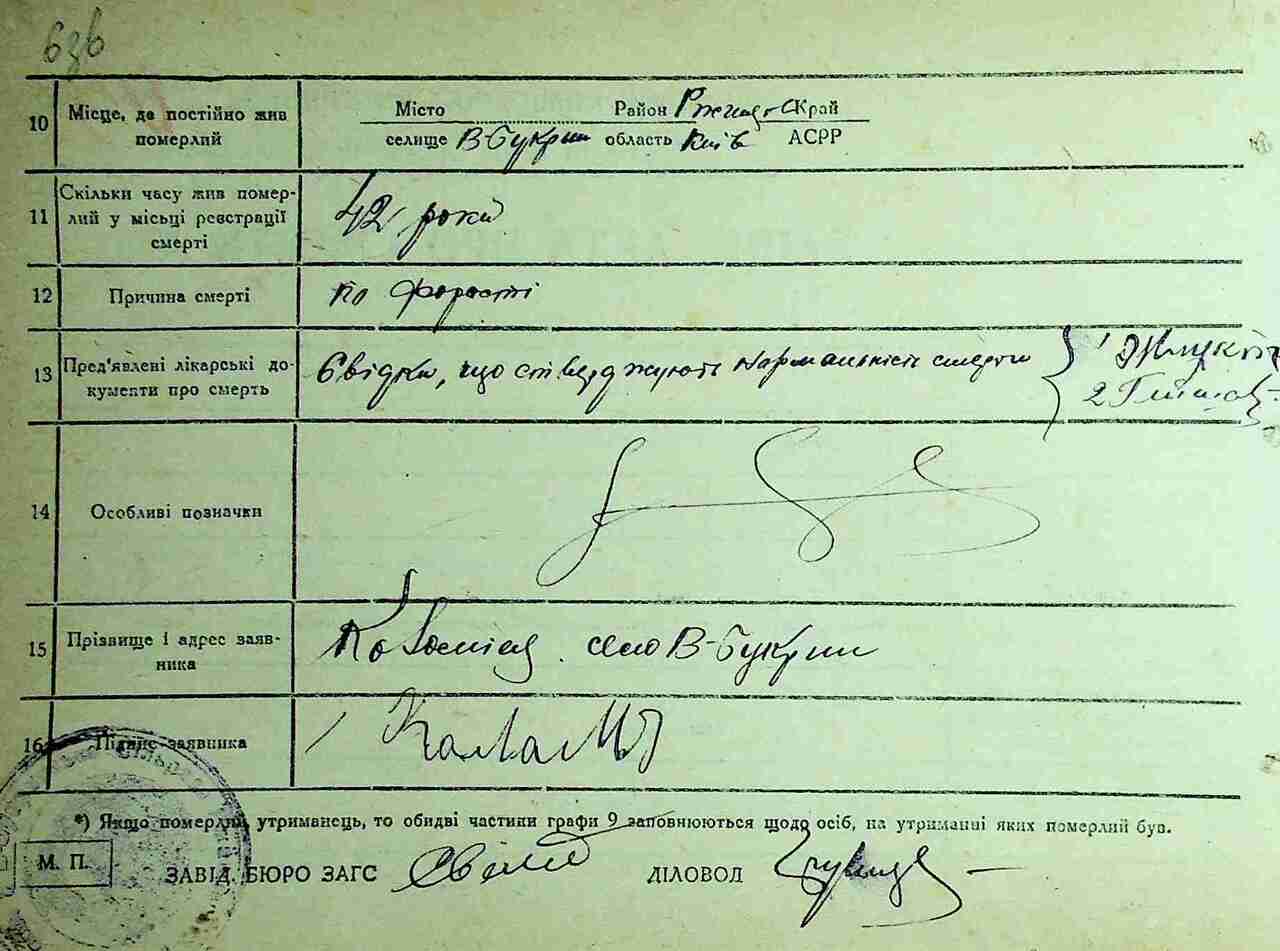 63б
10 Місце, де постійно жив померлий
Місто Район Ржищ. Край
селище В-Букрин область Київ АСРР
11 Скільки часу жив помер-
лий у місці реєстрації
смерті
42 роки
12 Причина смерті
по
13 Пред'явлені лікарські до-
кументи про смерть
Свідки, що стверджують нармальність смерти
1
2
14 Особливі позначки
15 Прізвище і адрес заяв-
ника
село В-Букрин
16 Підпис заявника
*) Якщо померлий утриманець, то обидві частини графи 9 заповнюються щодо осіб, на утриманні яких померлий був.
М. П.
ЗАВІД. БЮРО ЗАГС ДІЛОВОД